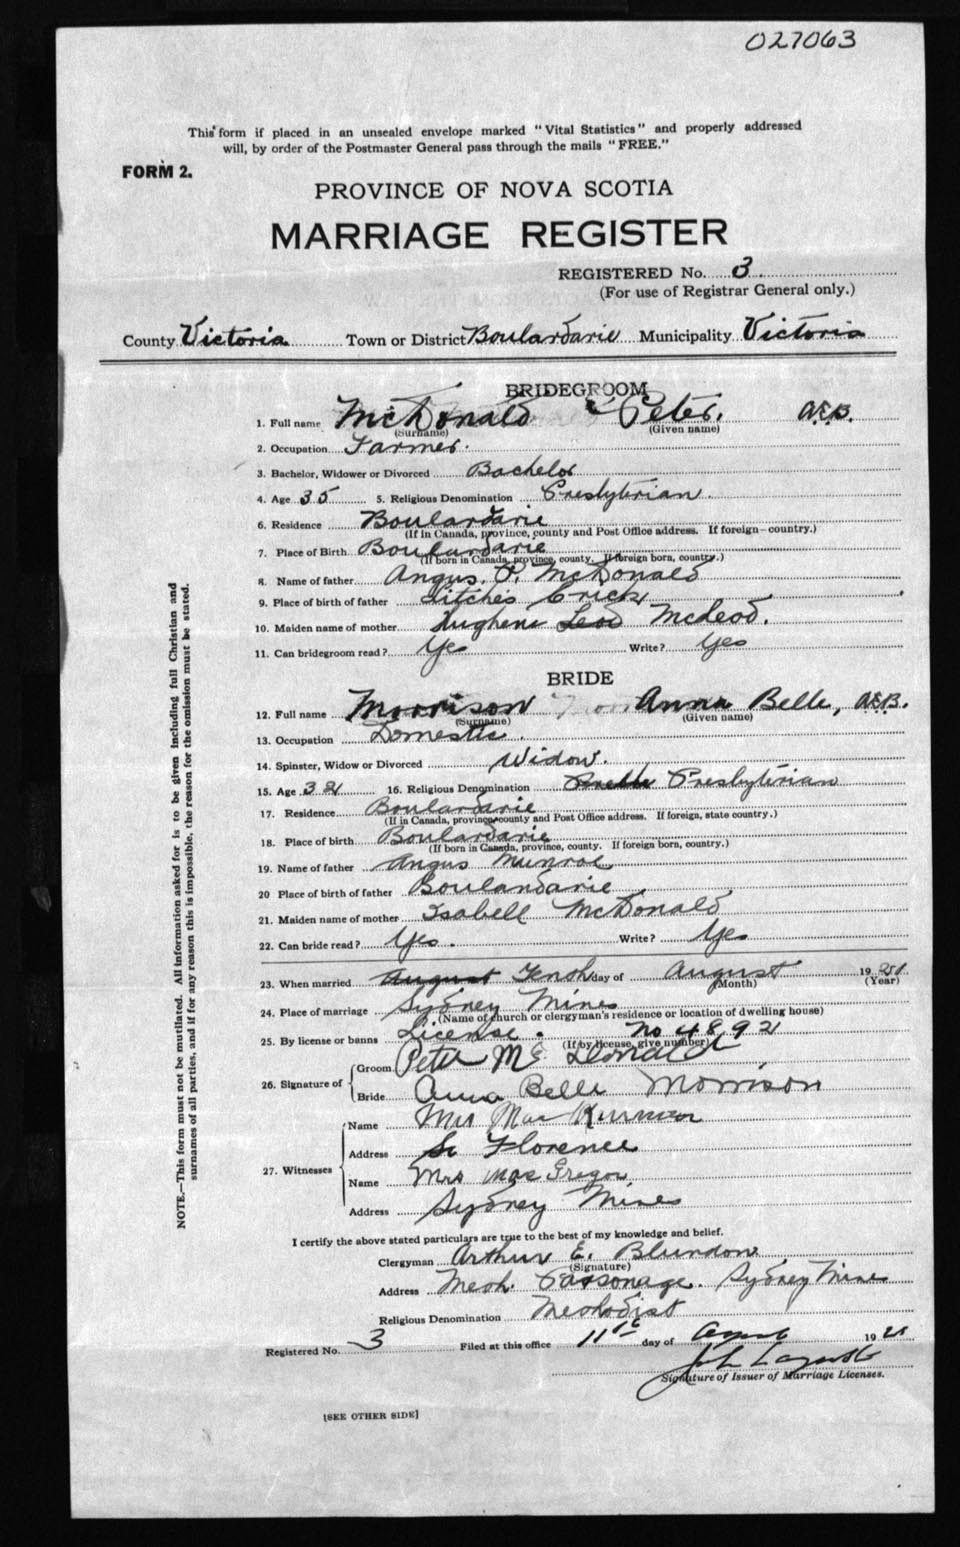 027063
This form if placed in an unsealed envelope marked "Vital Statistics" and properly addressed
will, by order of the Postmaster General pass through the mails "FREE."
FORM 2.
PROVINCE OF NOVA SCOTIA
MARRIAGE REGISTER
REGISTERED No. 3.
(For use of Registrar General only.)
County Victoria Town or District Boulardarie Municipality Victoria
BRIDEGROOM
1. Full name McDonald Peter. A.E.B.
(Surname) (Given name)
2. Occupation Farmer.
3. Bachelor, Widower or Divorced Bachelor
4. Age 35 5. Religious Denomination Presbyterian.
6. Residence Boulardarie
(If in Canada, province, county and Post Office address. If foreign-country.)
7. Place of Birth Boulardarie
(If born in Canada, province, county. If foreign born, country.)
8. Name of father Angus. P. McDonald
9. Place of birth of father Litches Crick,
10. Maiden name of mother Hughena Leod McLeod.
11. Can bridegroom read? Yes Write? Yes
BRIDE
12. Full name Morrison Anna Belle, A.E.B.
(Surname) (Given name)
13. Occupation Domestic.
14. Spinster, Widow or Divorced Widow.
15. Age 32 16. Religious Denomination Presbyterian
17. Residence Boulardarie
(If in Canada, province, county and Post Office address. If foreign, state country.)
18. Place of birth Boulardarie
(If born in Canada, province, county. If foreign born, country.)
19. Name of father Angus Munroe
20 Place of birth of father Boulardarie
21. Maiden name of mother Isabell McDonald
22. Can bride read? Yes. Write? Yes
23. When married August Tenth day of August 1921
(Month) (Year)
24. Place of marriage Sydney Mines
(Name of church or clergyman's residence or location of dwelling house)
25. By license or banns License. No 4892
(If by license, give number)
26. Signature of Groom Peter Mc Donald
Bride Anna Belle Morrison
27. Witnesses
Name Mrs Mac
Address Florence
Name Mrs MacGregor
Address Sydney Mines
I certify the above stated particulars are true to the best of my knowledge and belief.
Clergyman Arthur E. Blundon
(Signature)
Address Meth. Parsonage. Sydney Mines
Religious Denomination Methodist
Registered No. 3 Filed at this office 11th day of August 1921
John
Signature of Issuer of Marriage Licenses.
[SEE OTHER SIDE]
NOTE.—This form must not be mutilated. All information asked for is to be given including full Christian and
surnames of all parties, and if for any reason this is impossible, the reason for the emission must be stated.